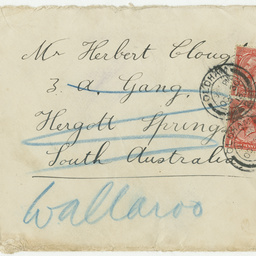 Mr Herbert Cloug
3. A. Gang.
Hergott Springs
South Australia
Wallaroo
OLDHAM